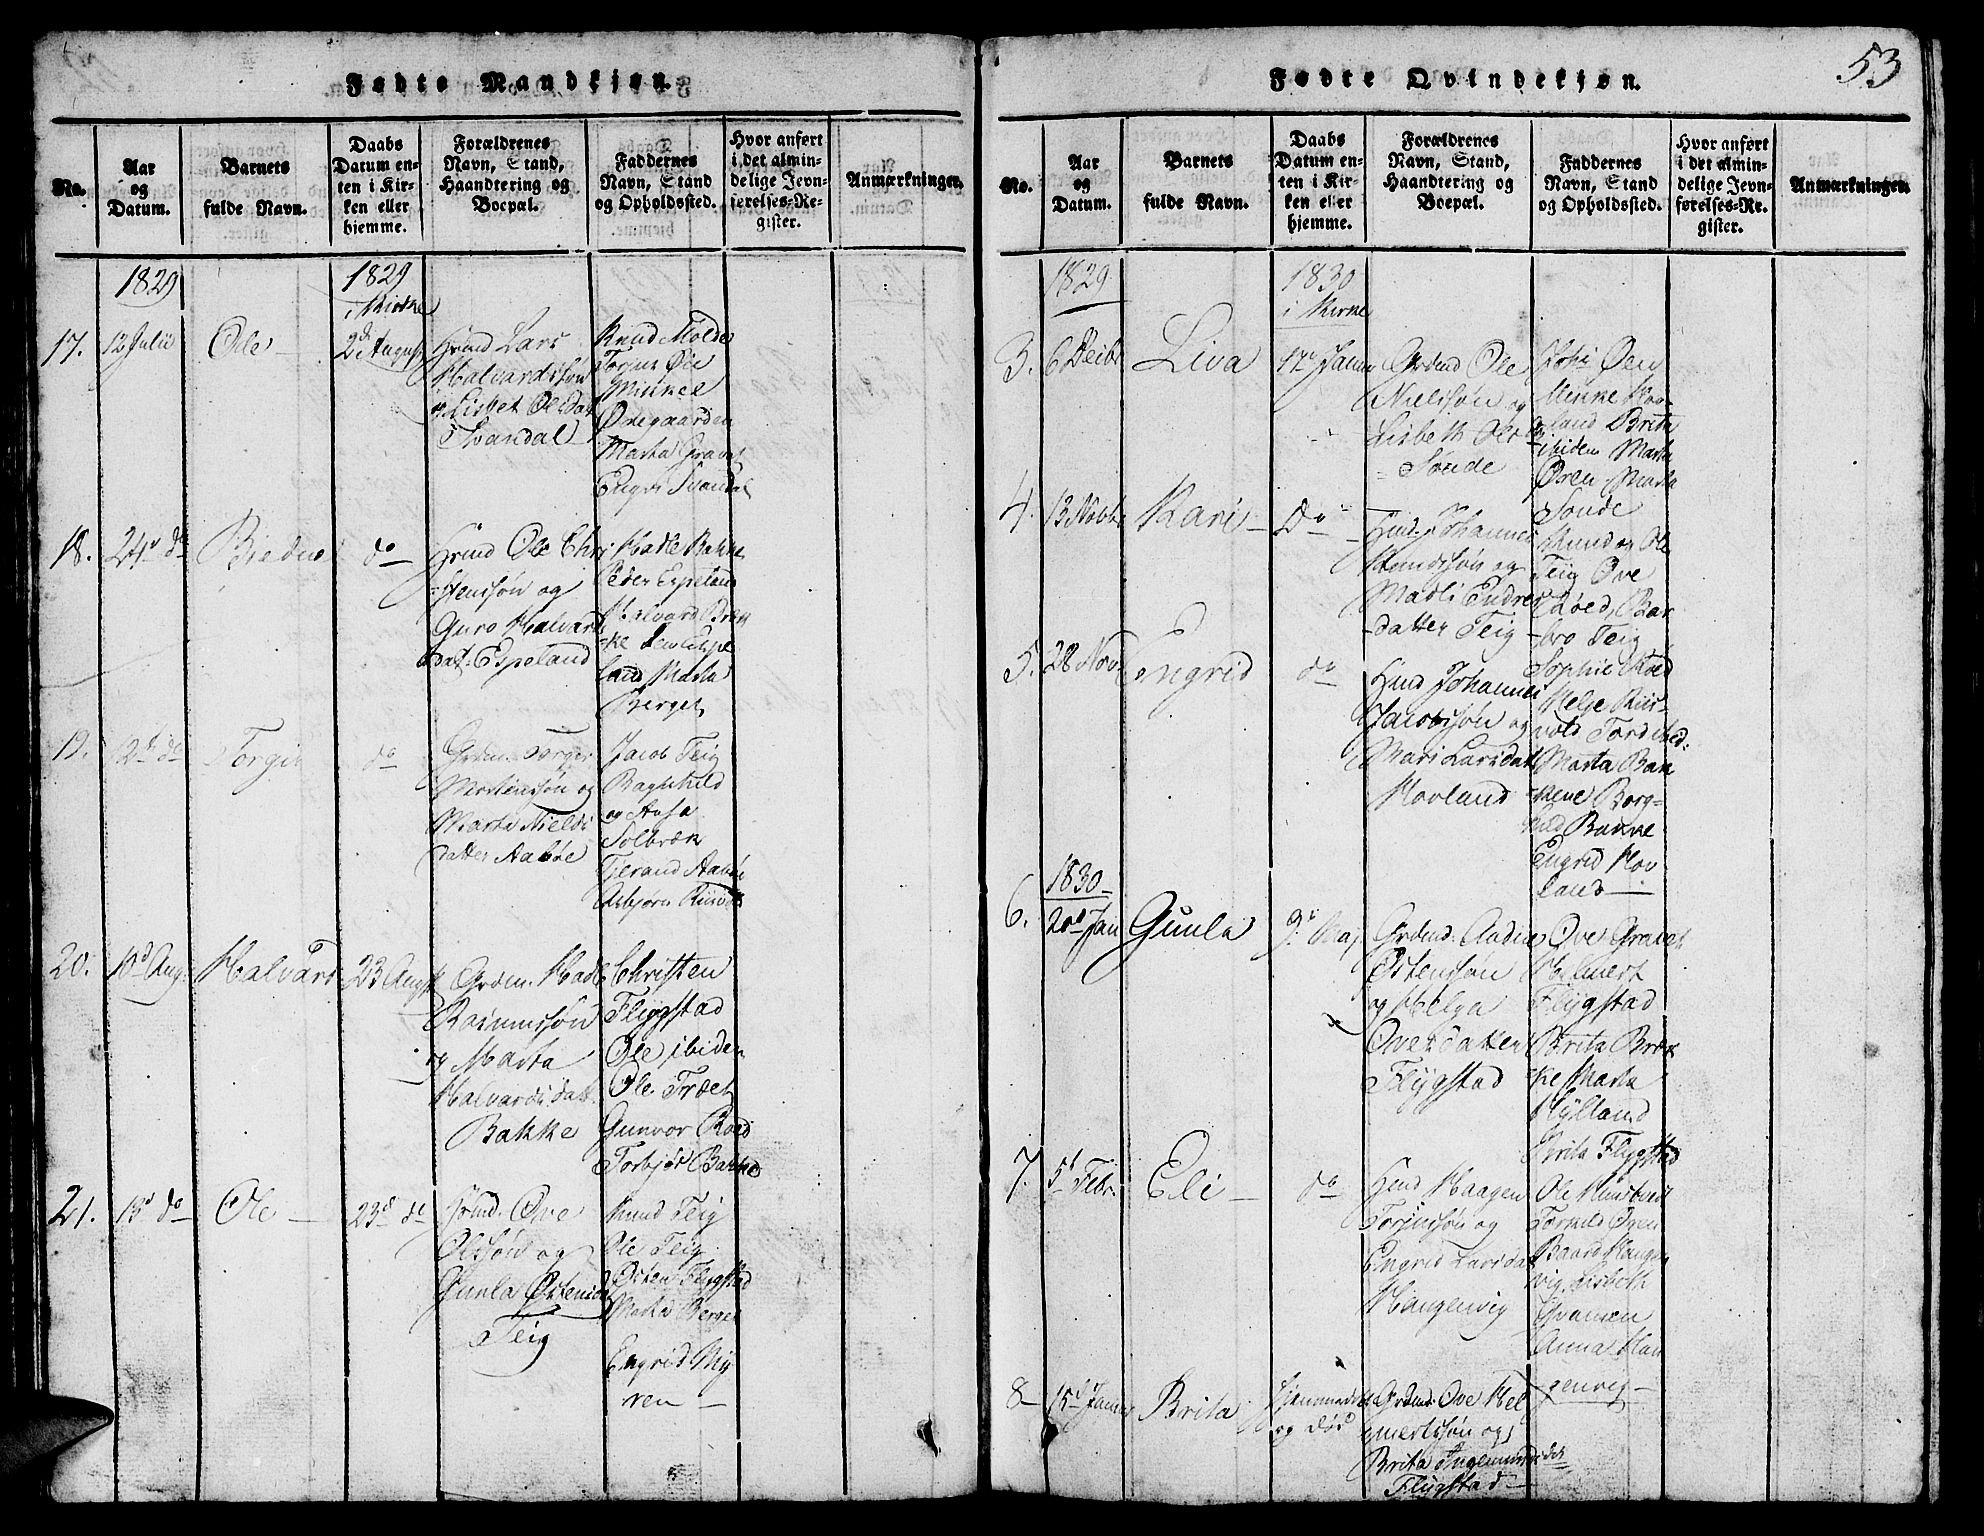 Fødte Mandkjøn.
No.
Aar
og
Datum.
Barnets
fulde Navn.
Daabs
Datum en-
ten i Kir-
ken eller
hjemme.
Forældrenes
Navn, Stand,
Haandtering og
Boepæl.
Faddernes
Navn, Stand
og Opholdssted.
Hvor anført
i det almin-
delige Jevn-
førelses-Re-
gister.
Anmærkninger.
1829
1829
i Kirke
17.
12 Julii
Ole
2d August
Lars
Halvardssøn
og Lisbet Olsdat
Svandal
Knud Molde
Mikkel
Ødegaarden
Marta Gravet
Engri Svandal
18.
24d do
do
Ole Chri
stensøn og
Guro Halvards
dat. Espeland
Hadle Bakke
Peder Espeland
Halvard Bræk
ke
land Marta
Berget
19.
do
Torger
Mortensøn og
Marta Nields
datter Aabøe
Jacob Teig
Ragnhild
og Aasa
Solbræk
Tjerand Aabøe
Asbjørn
20.
10d Aug.
Halvard
23 August
Grdm. Hadle
Rasmussøn
og Marta
Halvardsdatt.
Bakke
Christen
Fliggstad
Ole ibidem
Ole Træet
Gunvor Roed
Torbjør Bakke
21.
13d do
Ole
23d do
Ove
Olssøn og
Gunla Østensd
Teig
Knud Teig
Ole Teig
Østen Flygstad
Marta Berget
Engrid My
ren
53
Fødte Qvindekjøn.
No.
Aar
og
Datum.
Barnets
fulde Navn.
Daabs
Datum en-
ten i Kir-
ken eller
hjemme.
Forældrenes
Navn, Stand,
Haandtering og
Boepæl.
Faddernes
Navn, Stand
og Opholdssted.
Hvor anført
i det almin-
delige Jevn-
førelses-Re-
gister.
Anmærkninger.
1829
1830
i Kirke
3.
Liva
17d Januar
Grdmd Ole
Nielssøn og
Lisbeth Ols
Sønde
Øen
Mikke Hov-
land Brita
ibidem Marta
Øren Marta
Sonde
4.
13 Novbr
Kari
Do
Hmd. Johannes
Knudssøn og
Madli Endres
datter Teig
Knud og Ole
Teig Ove
Roed, Bar
bro Teig
5.
28 Nov.
Engrid
do
Hmd Johannes
Jacobssøn og
Mari Larsdatt
Hovland
Sophie Roed
Helge Riis-
vold
Marta Bak
kene Borg-
hild Bakke
Engrid Hov
land
1830
6.
20d Jan
Gunla
9d Maj
Grdmd. Aadne
Østensøn
og Helga
Ovesdatter
Flygstad
Ove Gravet
Helmert
Fliigstad
Brita Bræk
ke Marta
Hylland
Brita Flygstad
7.
5d Febr.
Eli
do
Hmd Haagen
og
Engrid Larsdat
Haugenvig
Ole
Torkild Øgen
Baard Haugen
vig, Lisbeth
Svansen
Anna Hau
genvig
8
15d Januar
Brita
Hjemmedøbt
og død
Grdmd. Ove Hel
mertssøn og
Brita Ingemunds dat
Flygstad